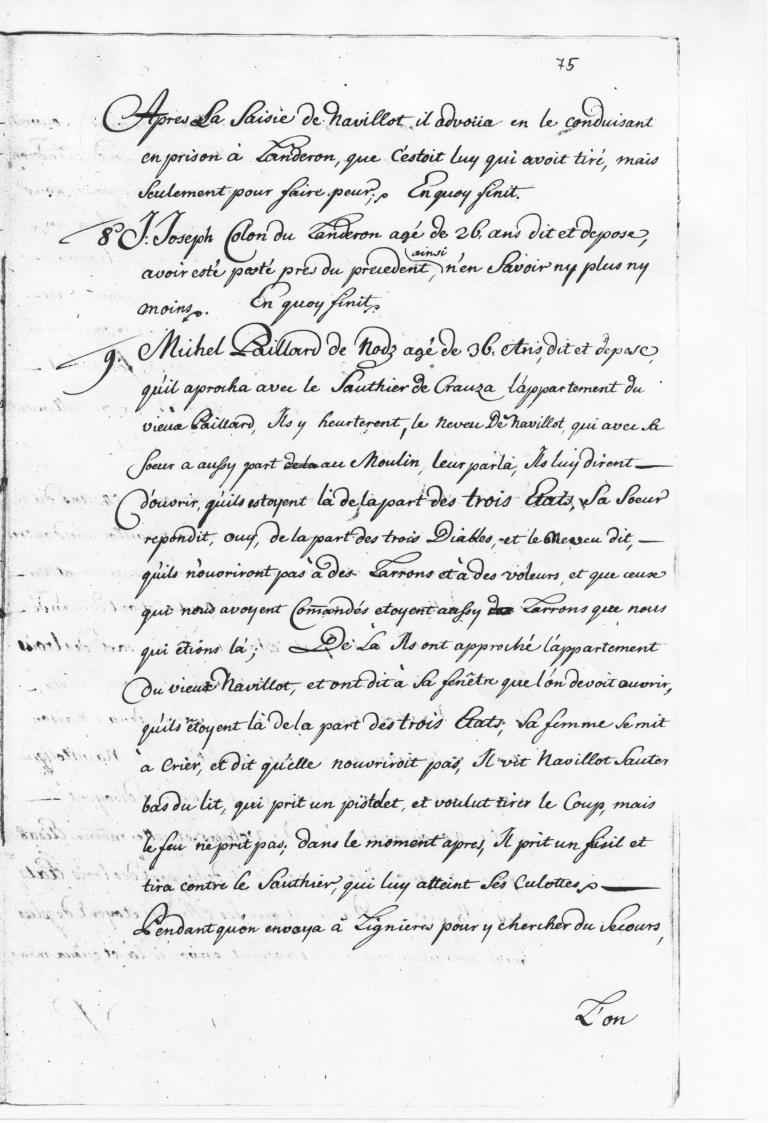 75
Apres La Saisie de Navillot il advoüa en le conduisant
en prison à Landeron, que c'estoit luy qui avoit tiré, mais
seulement pour faire peur; En quoy finit.
8° J: Joseph Colon du Landeron agé de 26. ans dit et depose,
avoir esté posté pres du precedent, ainsi n'en Savoir ny plus ny
moins. En quoy finit.
9. Michel Paillard de Nods agé de 36. Ans, dit et depose,
qu'il aprocha avec le Sauthier de Crauza l'appartement du
vieux Paillard, Ils y heurterent, le neveu De Navillot, qui avec sa
soeur a aussy part de la au Moulin, leur parla, Ils luy dirent
d'ouvrir, qu'ils estoyent là de la part des trois Etats, Sa Soeur
repondit, ouy, de la part des trois Diables, et le Neveu dit,
qu'ils n'ouvriront pas à des Larrons et à des voleurs, et que ceux
qui nous avoyent Com̃andés etoyent aussy Larrons que nous
qui êtions là; De Là Ils ont approché l'appartement
Du vieux Navillot, et ont dit à Sa fenêtre que l'on devoit ouvrir,
qu'ils êtoyent là de la part des trois Etats, Sa femme Se mit
à Crier, et dit qu'elle n'ouvriroit pas, Il vit Navillot Sauter
bas du lit, qui prit un pistolet, et voulut tirer le Coup, mais
le feu ne prit pas, dans le moment apres, Il prit un fusil et
tira contre le Sauthier, qui luy atteint Ses Culottes.
Pendant qu'on envoya à Lignieres pour y chercher du Secours,
L'on